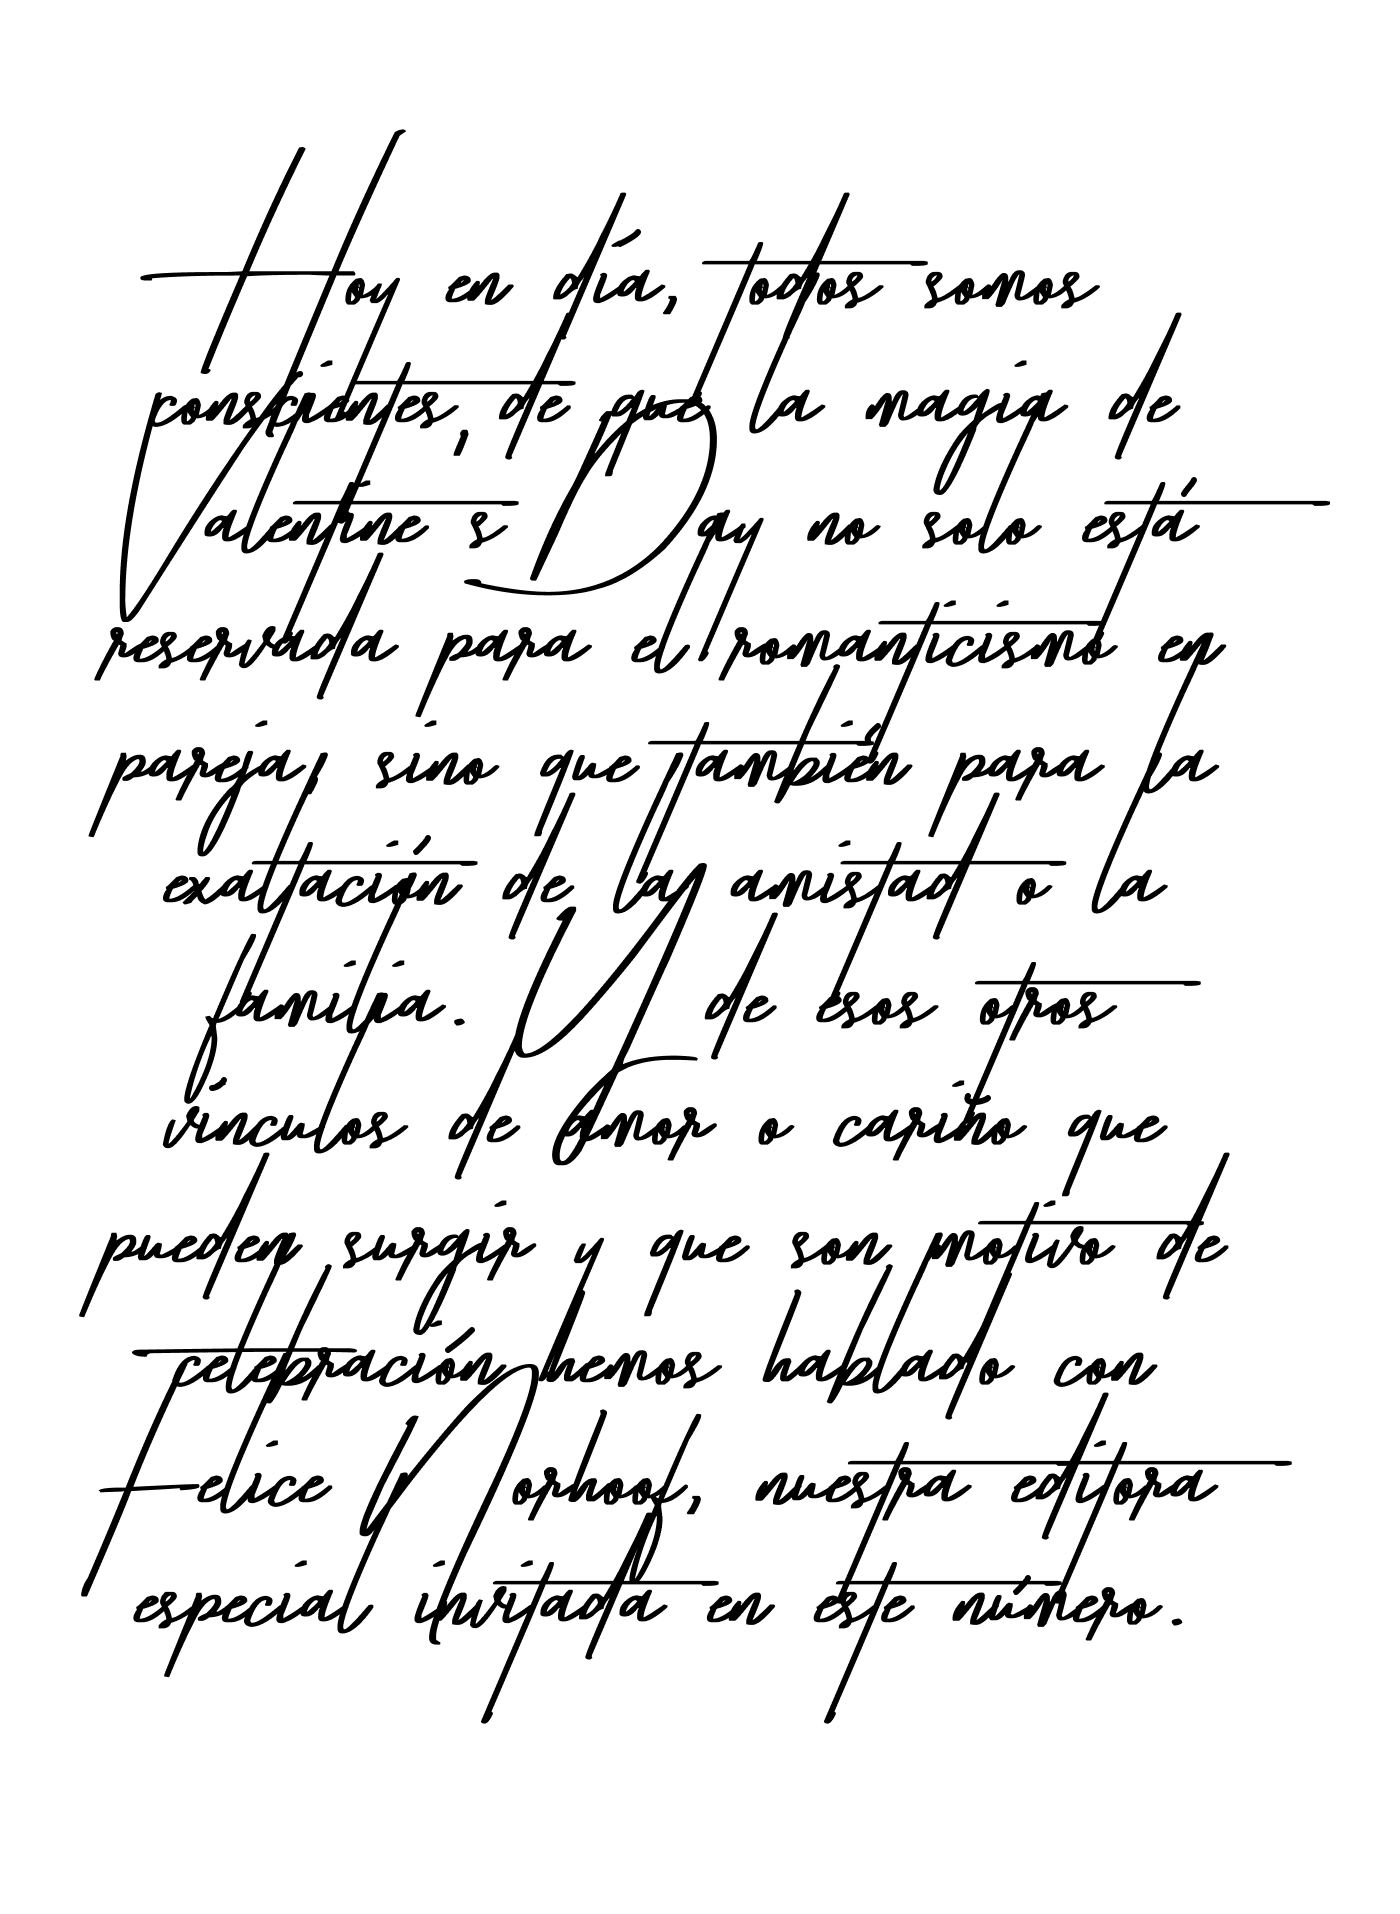 Hoy en día, todos somos
conscientes, de que la magia de
Valentine s Day no solo está
reservada para el romanticismo en
pareja, sino que también para la
exaltación de la amistad o la
familia. Y de esos otros
vínculos de amor o cariño que
pueden surgir y que son motivo de
celebración hemos hablado con
Felice Norhoof, nuestra editora
especial invitada en este número.